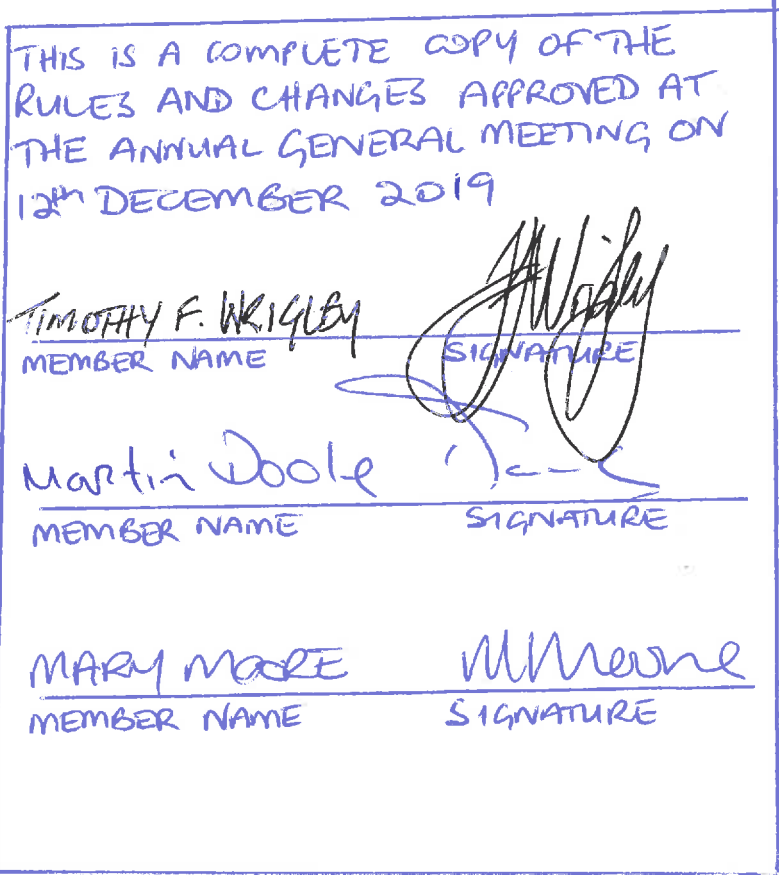 THIS IS A COMPLETE COPY OF THE
RULES AND CHANGES APPROVED AT
THE ANNUAL GENERAL MEETING ON
12th DECEMBER 2019
TIMOTHY F. WRIGLEY
MEMBER NAME SIGNATURE
Martin Doole
MEMBER NAME SIGNATURE
MARY MOORE MMoore
MEMBER NAME SIGNATURE